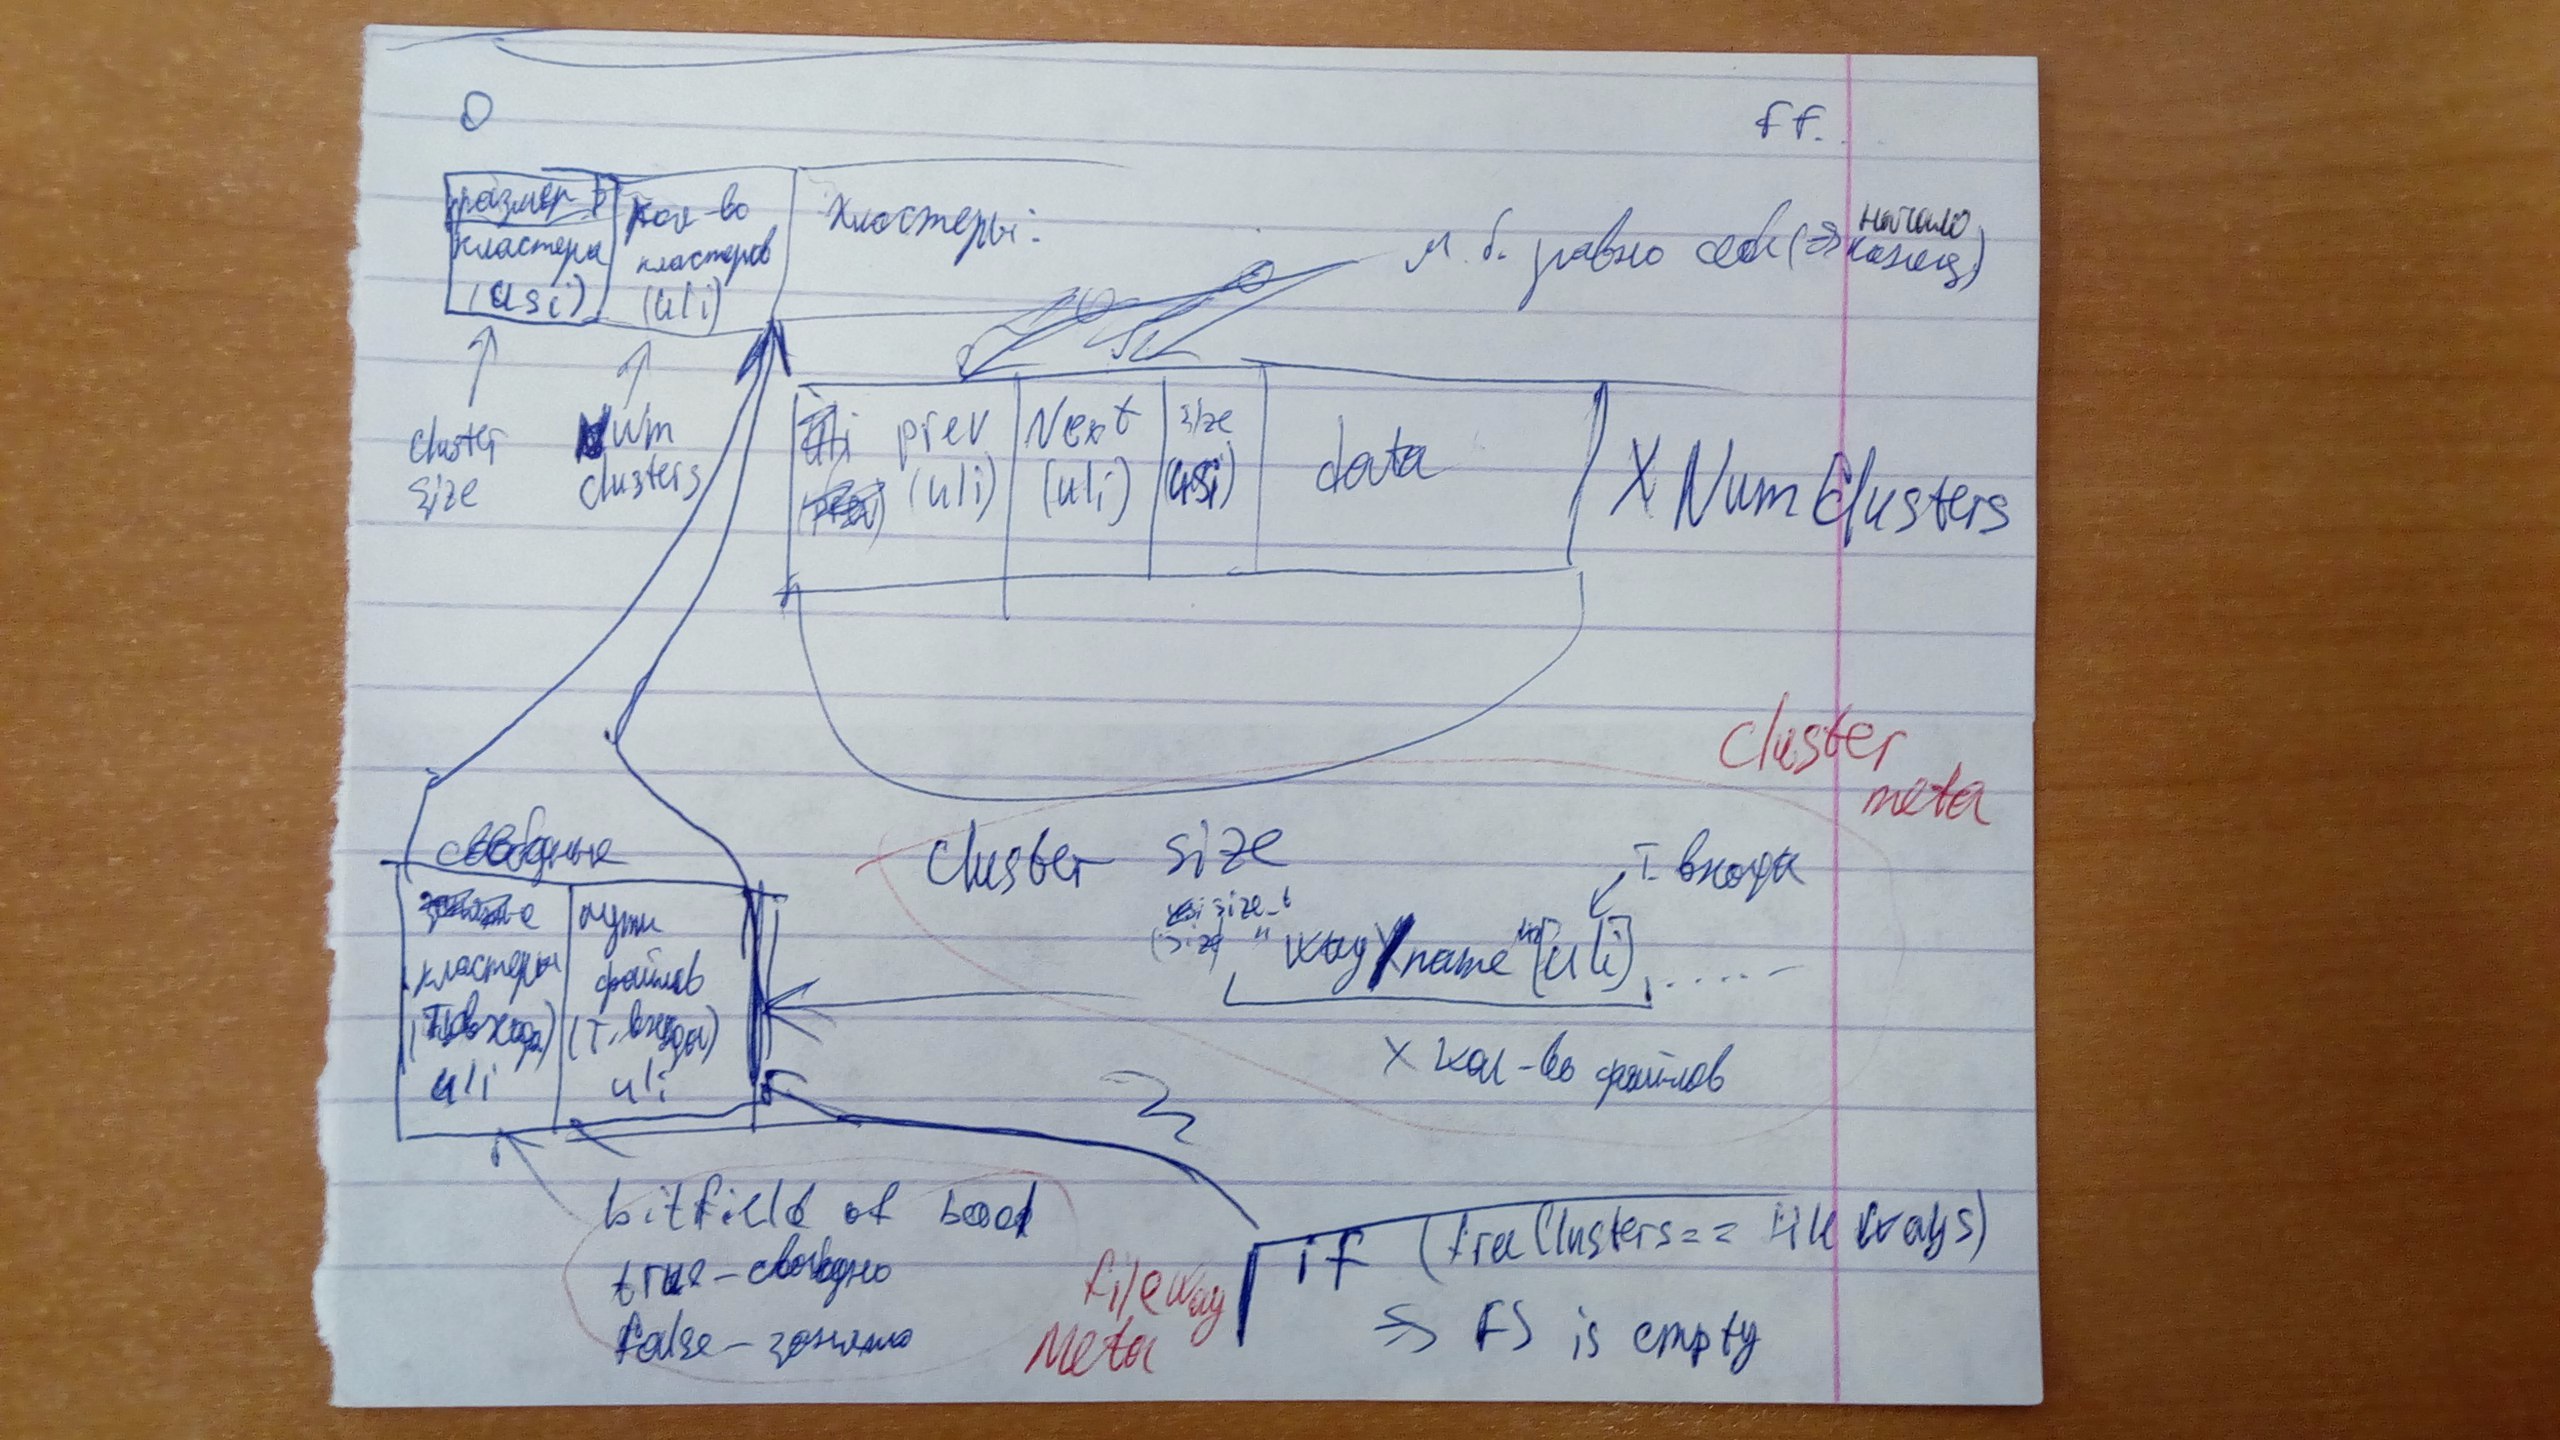 0
ff.
размер
кластера
(usi)
кол-во
кластеров
(uli)
кластеры:
м. б. равно себе (⇒ начало
конец)
cluster
size
Num
clusters
prev
(uli)
Next
(uli)
size
(usi)
data
X NumClusters
cluster
meta
свободные
кластеры
(Т. входа)
uli
пути
файлов
(Т. входа)
uli
cluster size
Т. входа
size_t
way name [uli] .....
X кол-во файлов
bitfield of bool
true – свободно
false – занято
fileway
Meta
if (freeClusters == ways)
⇒ FS is empty